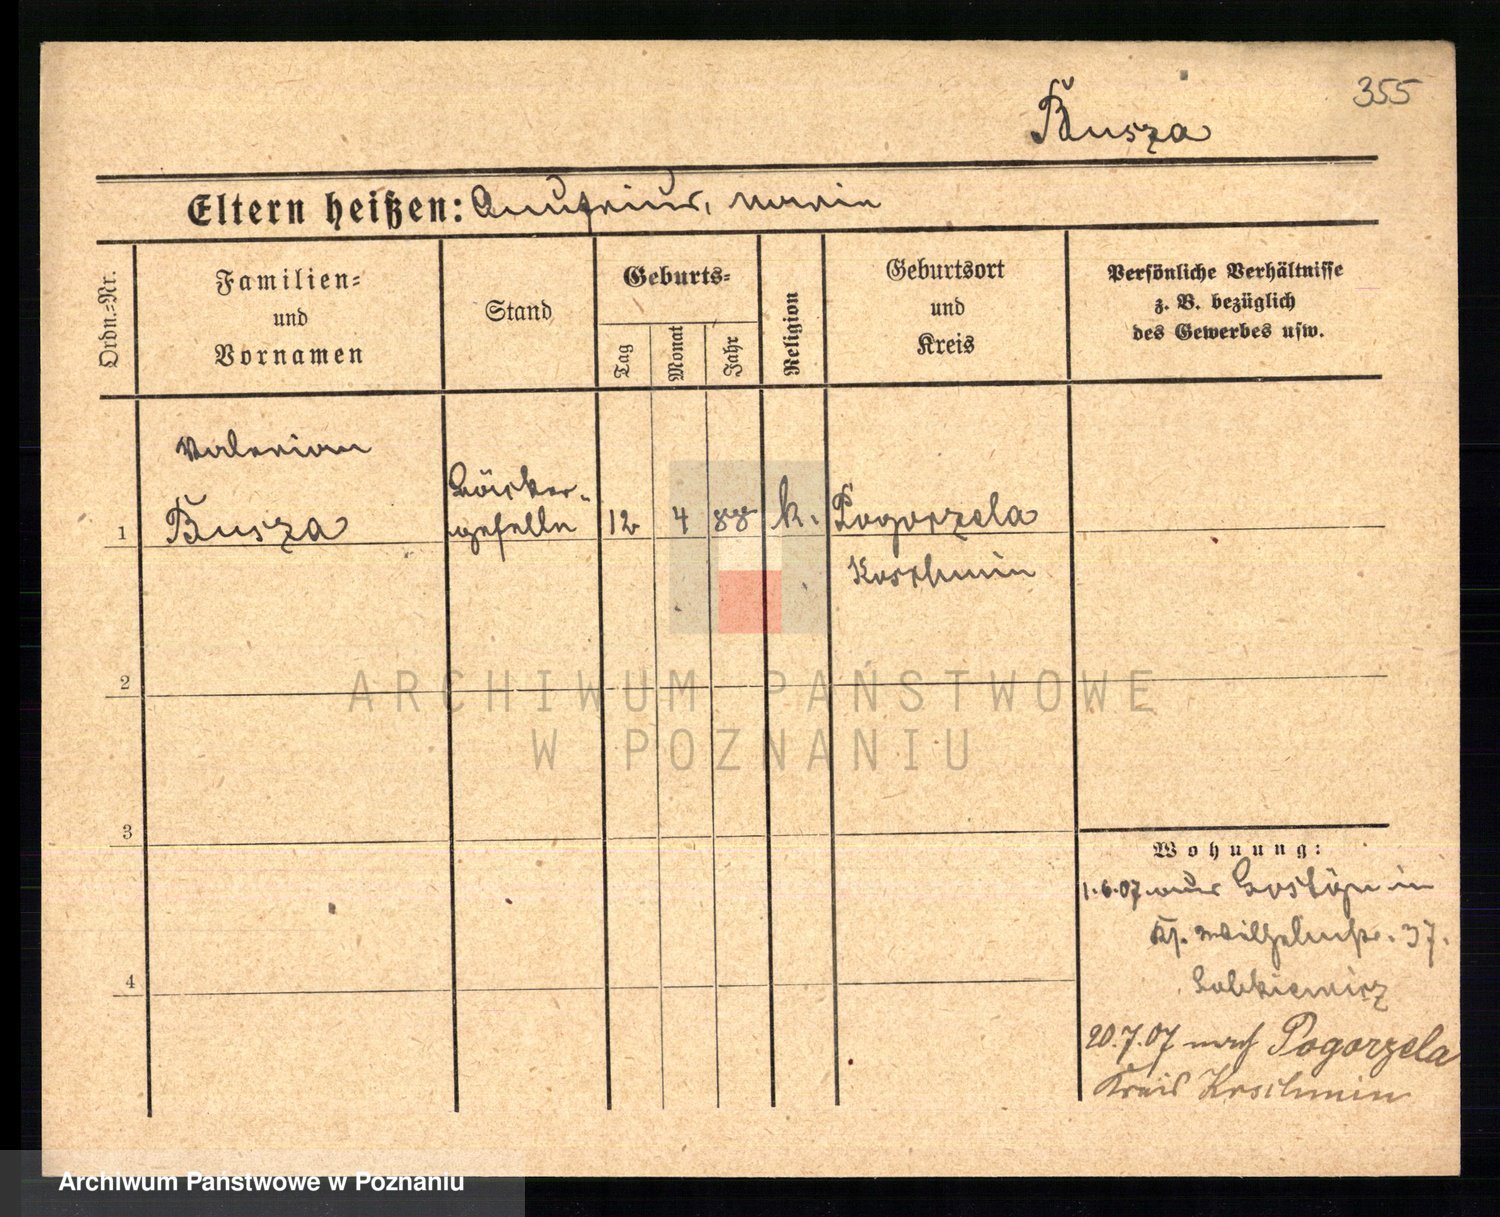 355
Busza
Eltern heißen: Onufrius, Marie
Ordn.=Nr.
Familien=
und
Vornamen
Stand
Geburts=
Tag
Monat
Jahr
Religion
Geburtsort
und
Kreis
Persönliche Verhältnisse
z. B. bezüglich
des Gewerbes usw.
Valerian
Bäcker-
1 Busza geselle 12 4 88 k. Pogorzela
Koschmin
2
3
4
Wohnung:
1.6.07 aus Gostyn in
Wilhelmstr. 37.
20.7.07 nach Pogorzela
Kreis Koschmin
ARCHIWUM PAŃSTWOWE
W POZNANIU
Archiwum Państwowe w Poznaniu